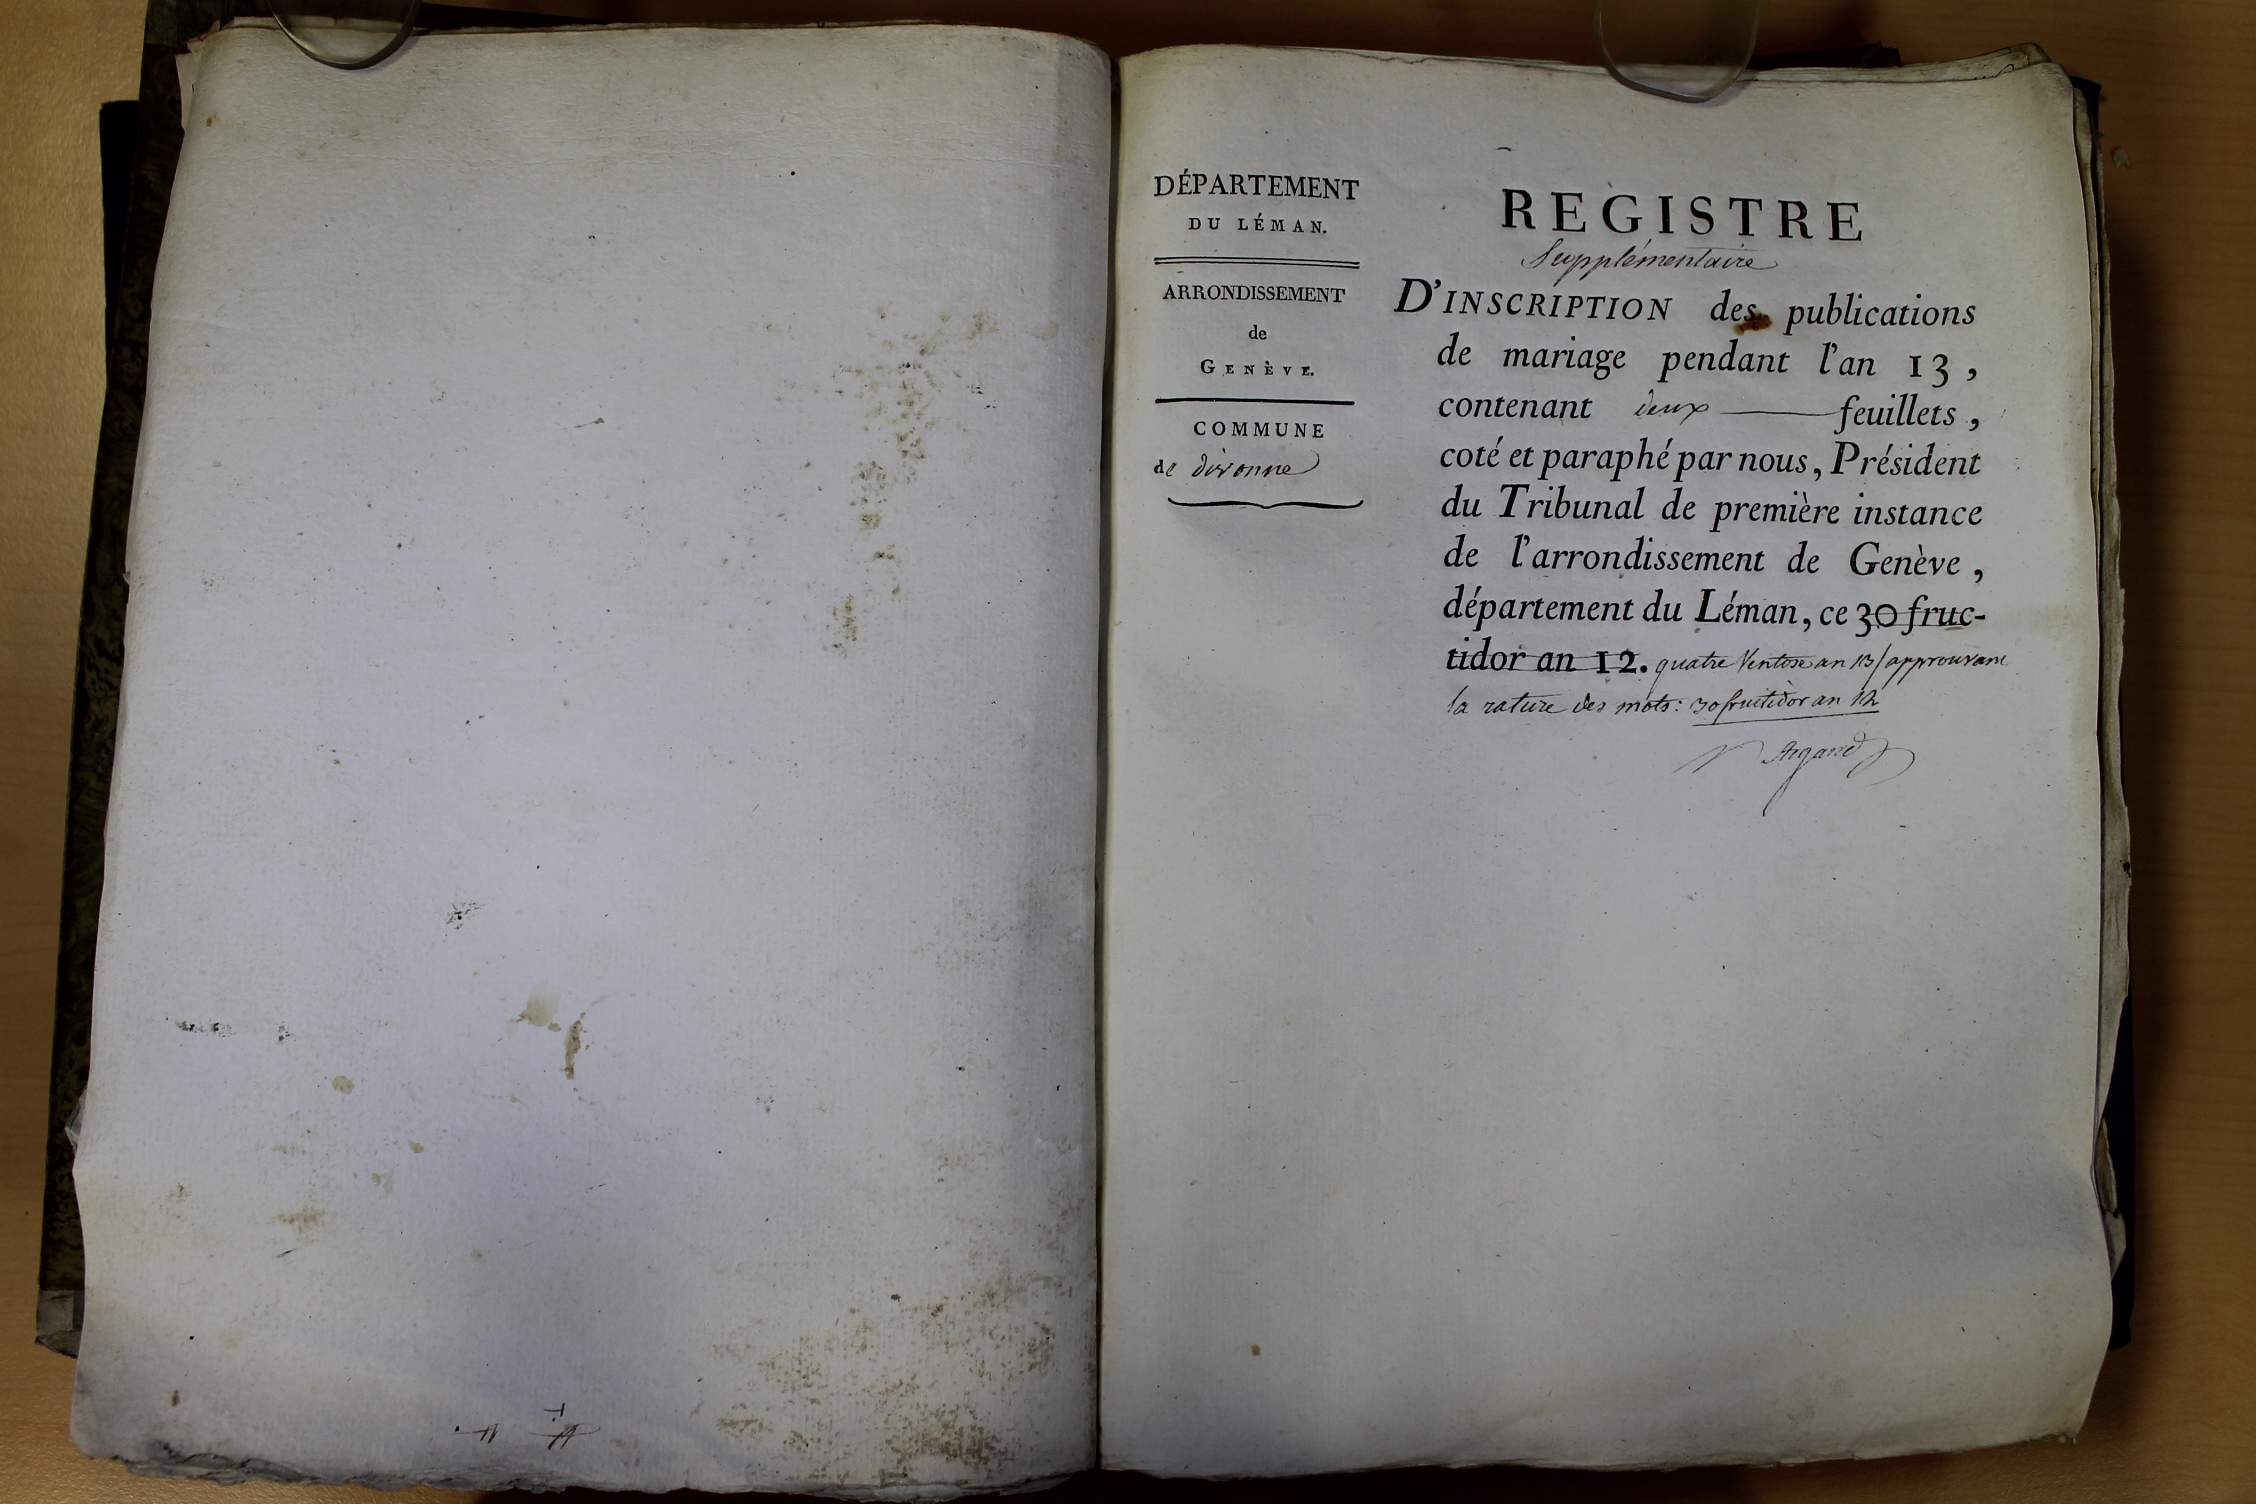 DÉPARTEMENT
DU LÉMAN.
ARRONDISSEMENT
de
GENÈVE.
COMMUNE
de divonne
REGISTRE
Supplémentaire
D'INSCRIPTION des publications
de mariage pendant l'an 13,
contenant deux feuillets,
coté et paraphé par nous, Président
du Tribunal de première instance
de l'arrondissement de Genève,
département du Léman, ce 30 fruc-
tidor an 12. quatre Ventose an 13/approuvant
la rature des mots: 30 fructidor an 12
Argand